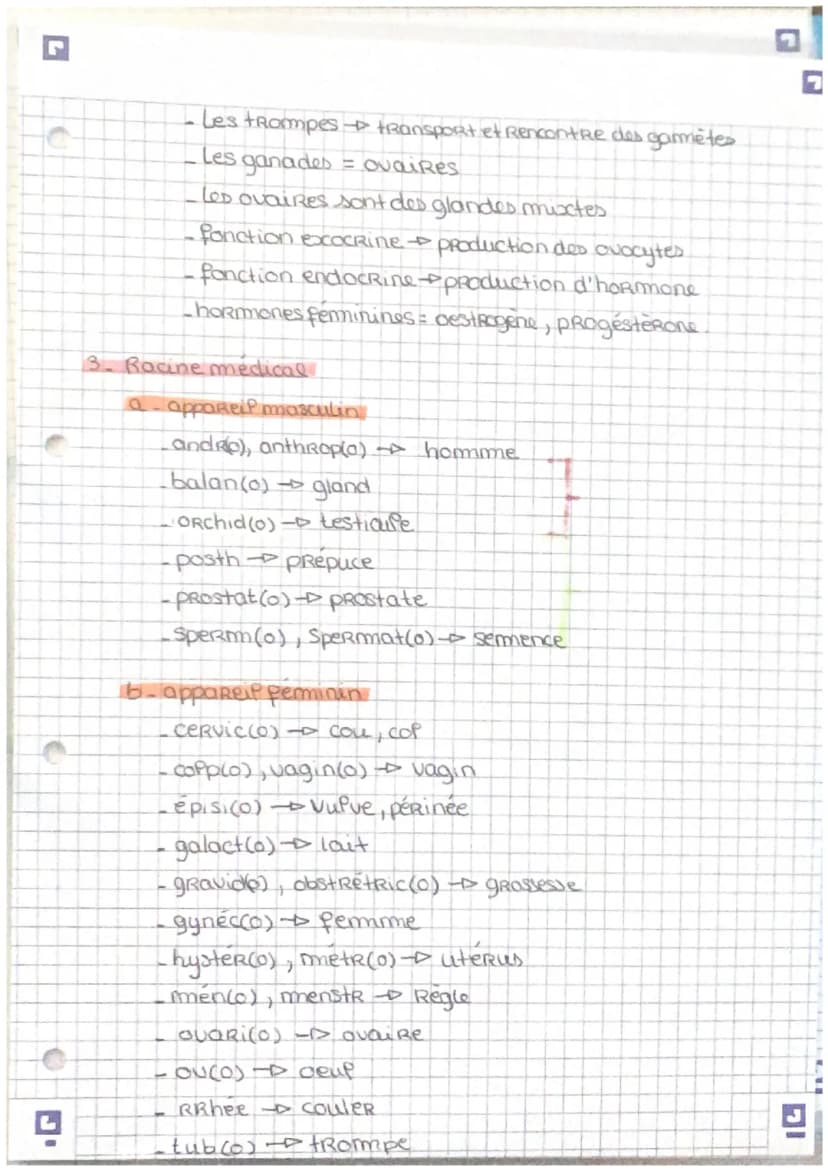 - Les trompes → transport et rencontre des gamètes
- Les ganades = ovaires
- Les ovaires sont des glandes mixtes
- fonction exocrine → production des ovocytes
- fonction endocrine → production d'hormone
- hormones féminines = oestrogène, progéstèrone.
3- Racine médical
a - appareil masculin
- andr(o), anthrop(o) → homme
- balan(o) → gland
- orchid(o) → testicule
- posth → prépuce
- prostat(o) → prostate
- sperm(o), spermat(o) → semence
b - appareil féminin
- cervic(o) → cou, col
- colp(o), vagin(o) → vagin
- épisi(o) → vulve, périnée
- galact(o) → lait
- gravid(o), obstrétric(o) → grossesse
- gynéc(o) → femme
- hystér(o), métr(o) → utérus
- mén(o), menstr → Règle
- ovari(o) → ovaire
- ov(o) → oeuf
- rrhée → couler
- tub(o) → trompe